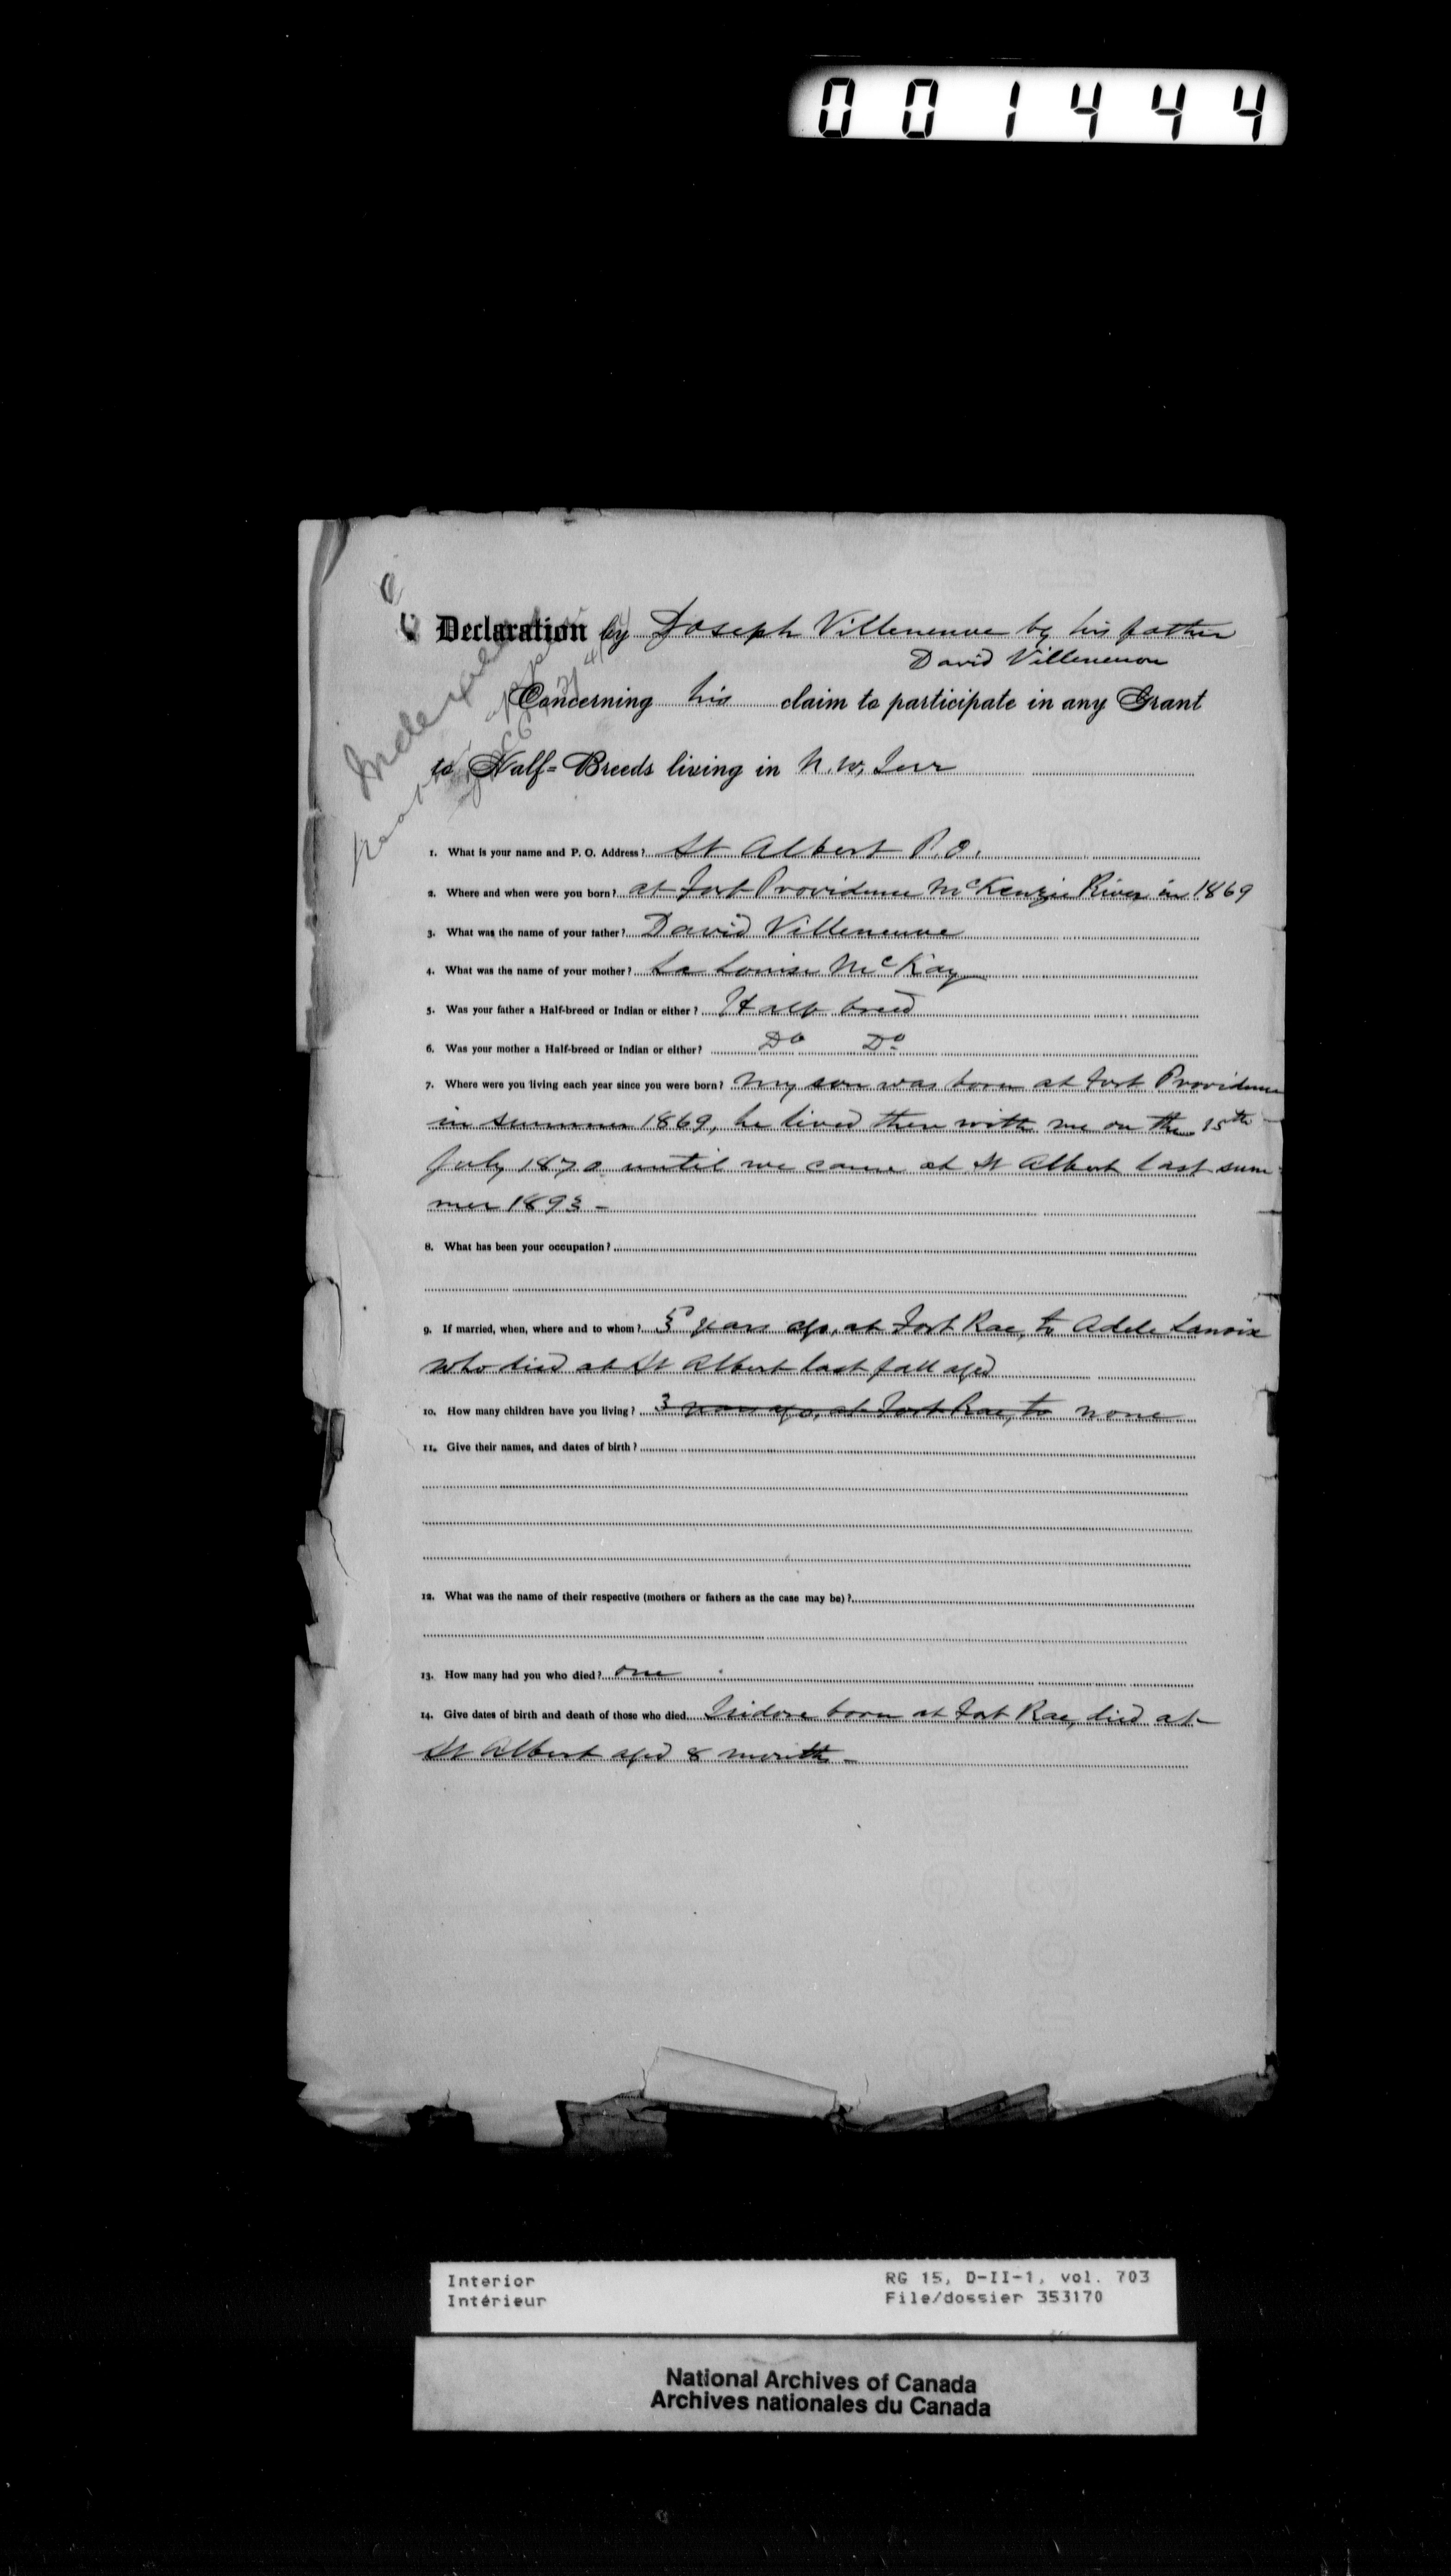 001444
Declaration by Joseph Villeneuve by his father
David Villeneuve
Concerning his claim to participate in any Grant
to Half-Breeds living in N. W. Terr
1. What is your name and P. O. Address? St Albert P.O.
2. Where and when were you born? at Fort Providence McKenzie River in 1869
3. What was the name of your father? David Villeneuve
4. What was the name of your mother? La Louise McKay
5. Was your father a Half-breed or Indian or either? Half breed
6. Was your mother a Half-breed or Indian or either? Do Do
7. Where were you living each year since you were born? My son was born at Fort Providence
in summer 1869, he lived there with me on the 15th
July 1870 until we came at St Albert last sum-
mer 1893 -
8. What has been your occupation?
9. If married, when, where and to whom? 5 years ago, at Fort Rae, to Adele
who died at St Albert last fall aged
10. How many children have you living? 3 years ago, at Fort Rae, to none
11. Give their names, and dates of birth?
12. What was the name of their respective (mothers or fathers as the case may be)?
13. How many had you who died? one
14. Give dates of birth and death of those who died. Isidore born at Fort Rae, died at
St Albert aged 8 month -
Interior
Intérieur
RG 15, D-II-1, vol. 703
File/dossier 353170
National Archives of Canada
Archives nationales du Canada